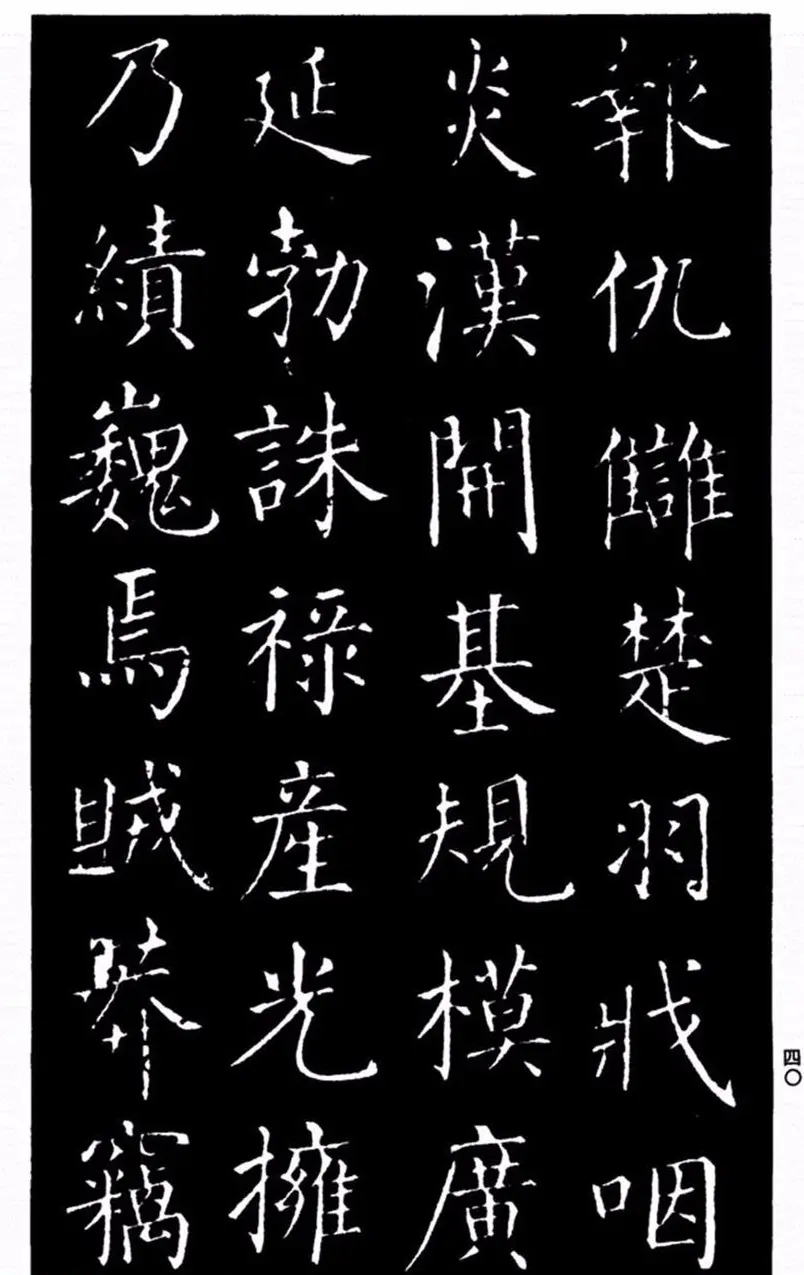 報仇讎楚羽戕咽
炎漢開基規模廣
延勃誅禄産光擁
乃績巍焉賊莽竊
四〇